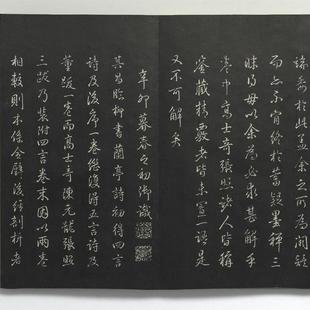 疎漏於此益余之可為闕疑
而正不肯終於蓄疑墨稗三
昧得毋以余為必求甚解乎
卷中高士奇張照諸人皆稱
鑒藏精覈者皆未宣識是
又不可解矣
辛卯暮春之初御識
其昌臨柳書蘭亭詩初得四言
詩及後序一卷繼復得五言詩及
董跋一卷而高士奇陳元龍張照
三跋乃裝附四言卷末因以兩卷
相較則本係合璧後經剖析者